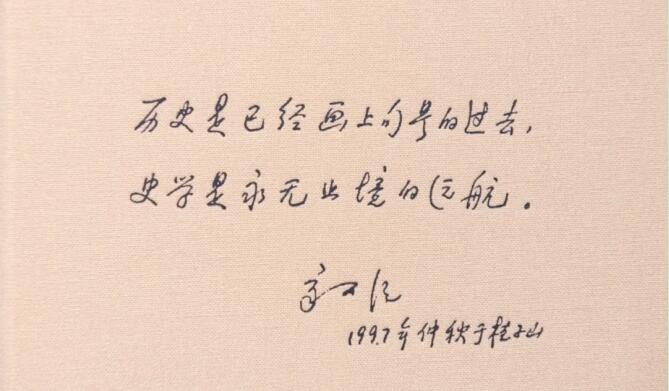 历史是已经画上句号的过去，
史学是永无止境的远航。
1997年仲秋于桂子山